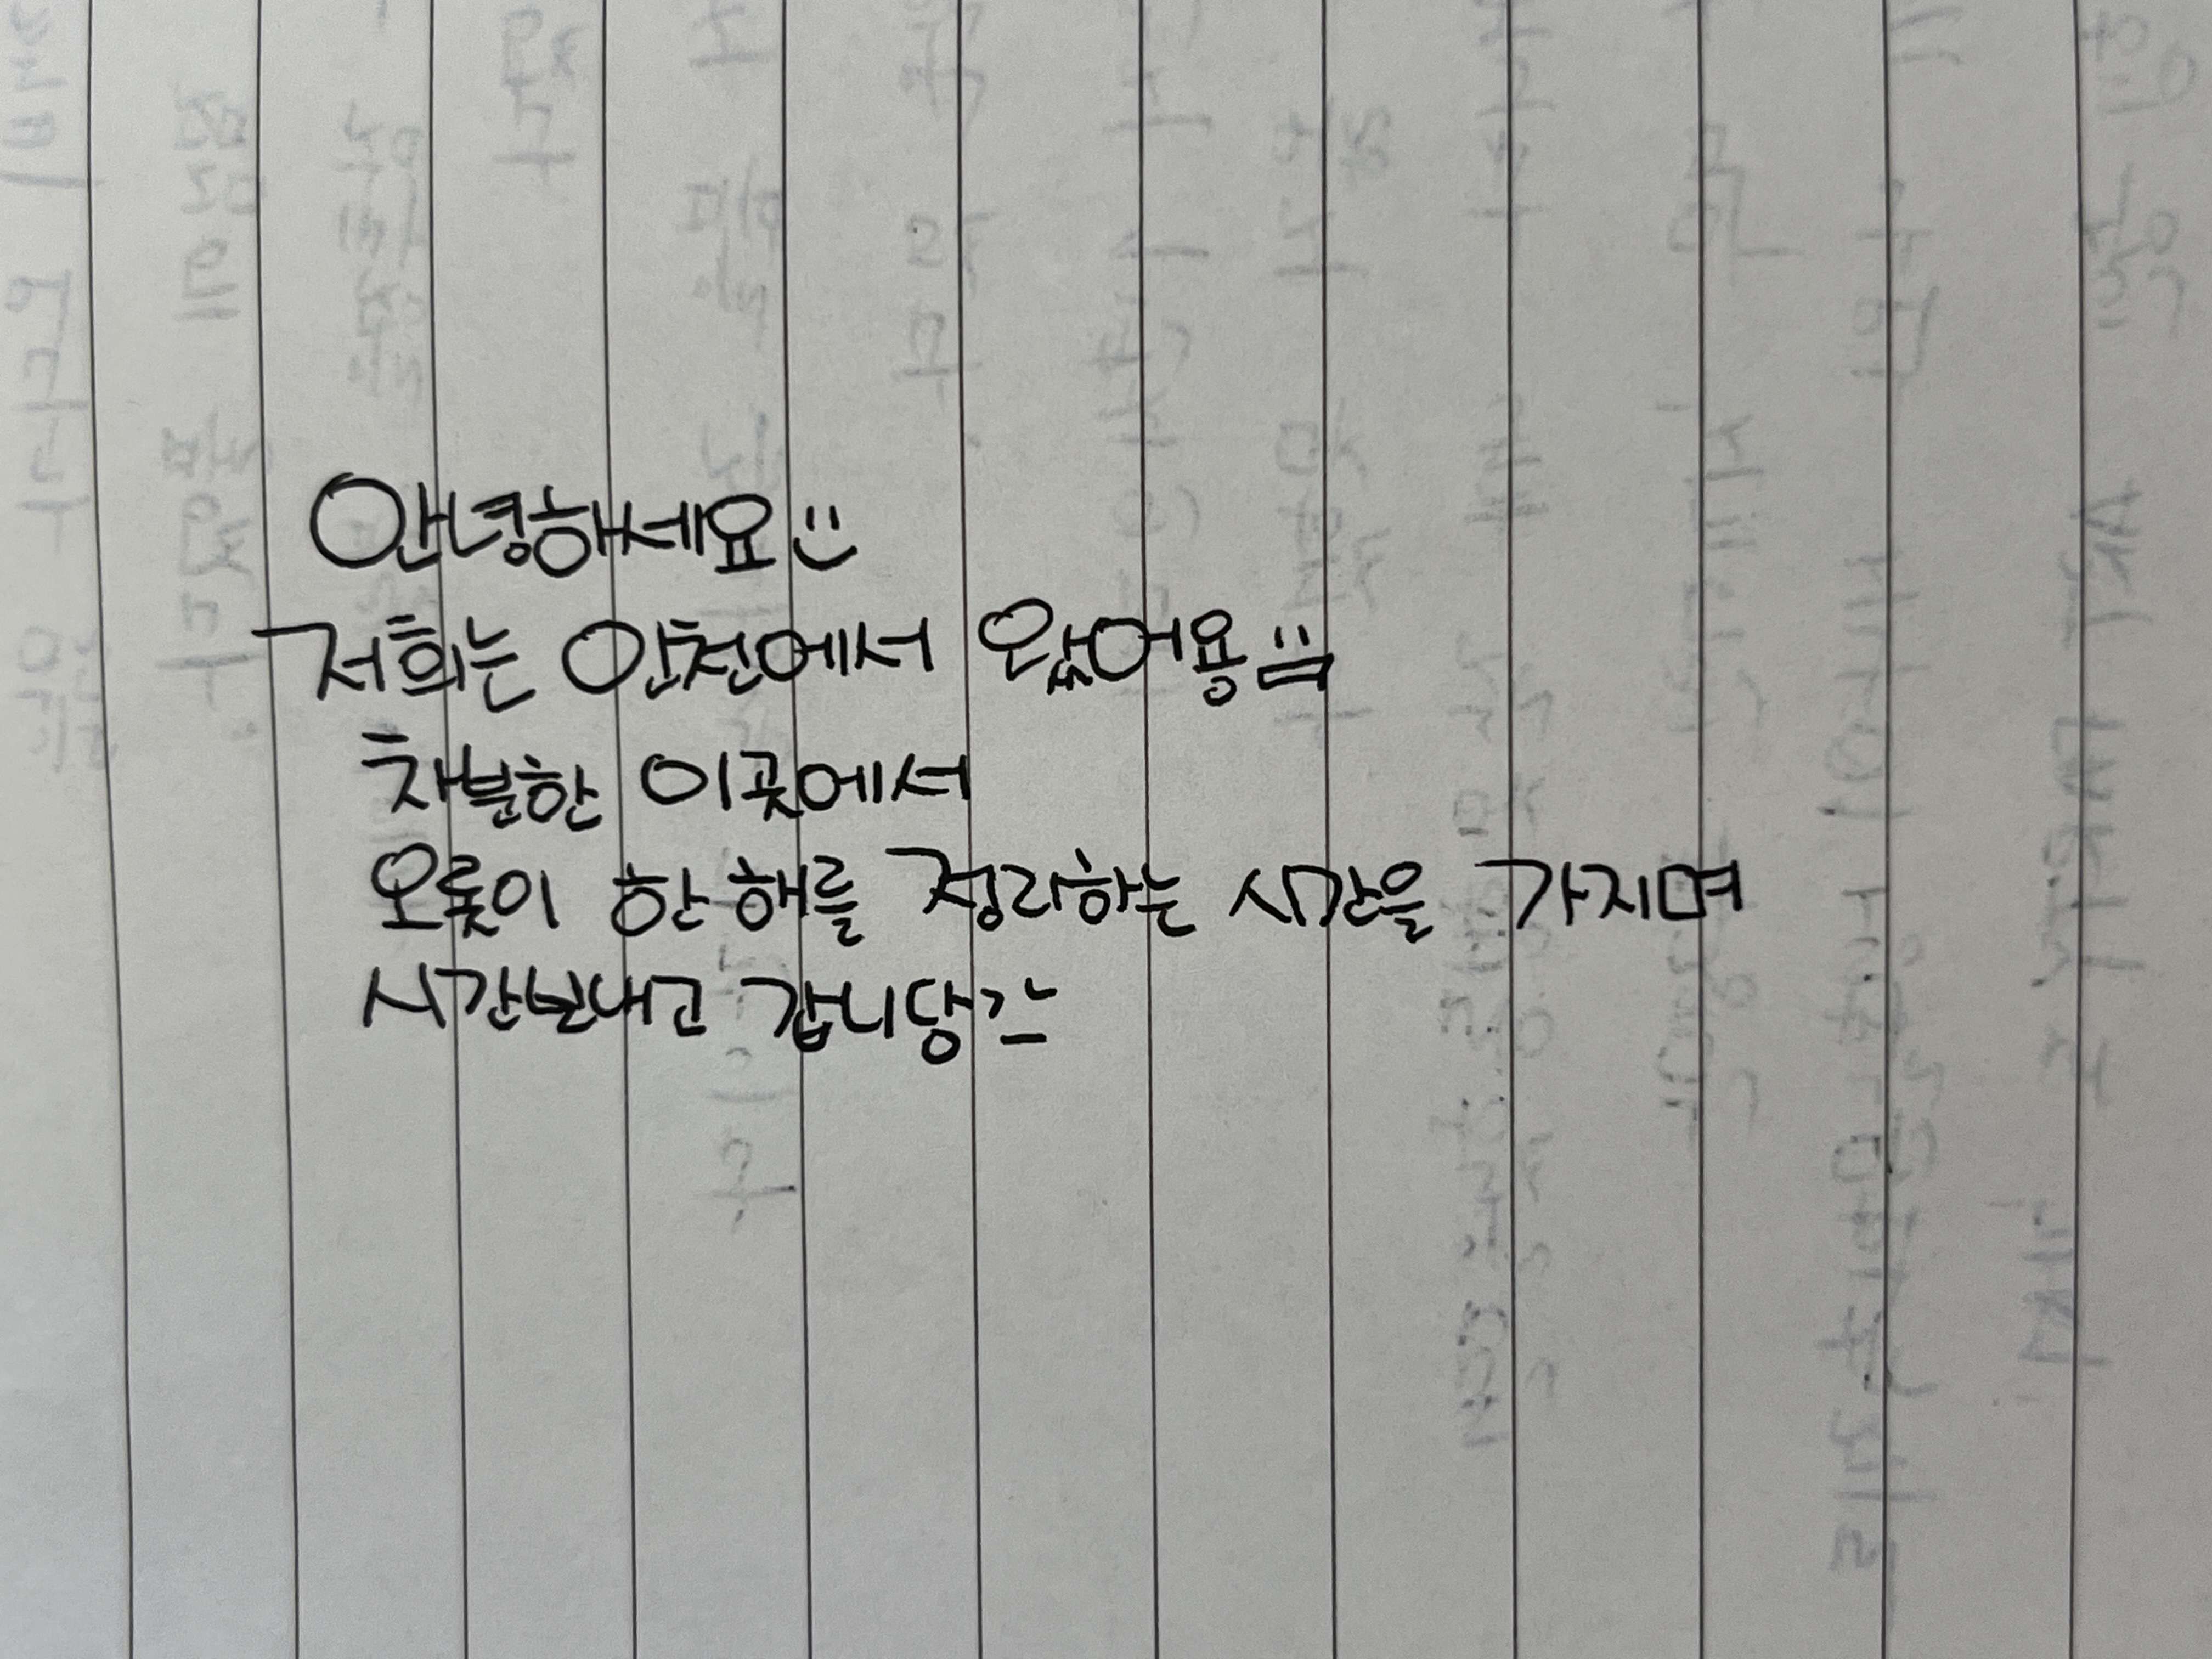 안녕하세요
저희는 인천에서 왔어용
차분한 이곳에서
오롯이 한 해를 정리하는 시간을 가지며
시간보내고 갑니당